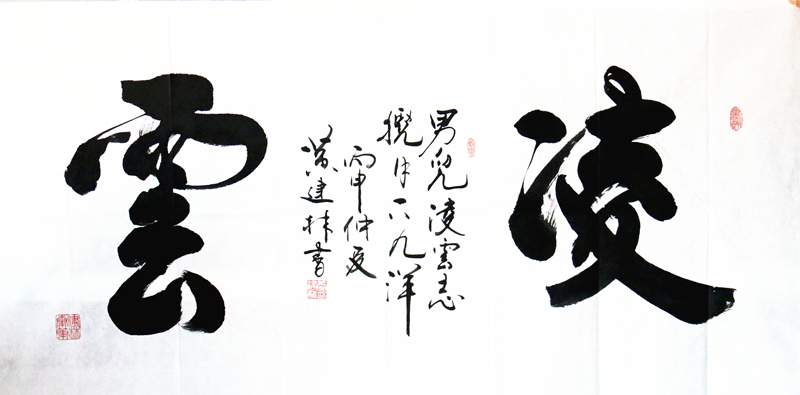 凌
男兒凌雲志
攬月下九洋
丙申仲夏
建林書
雲